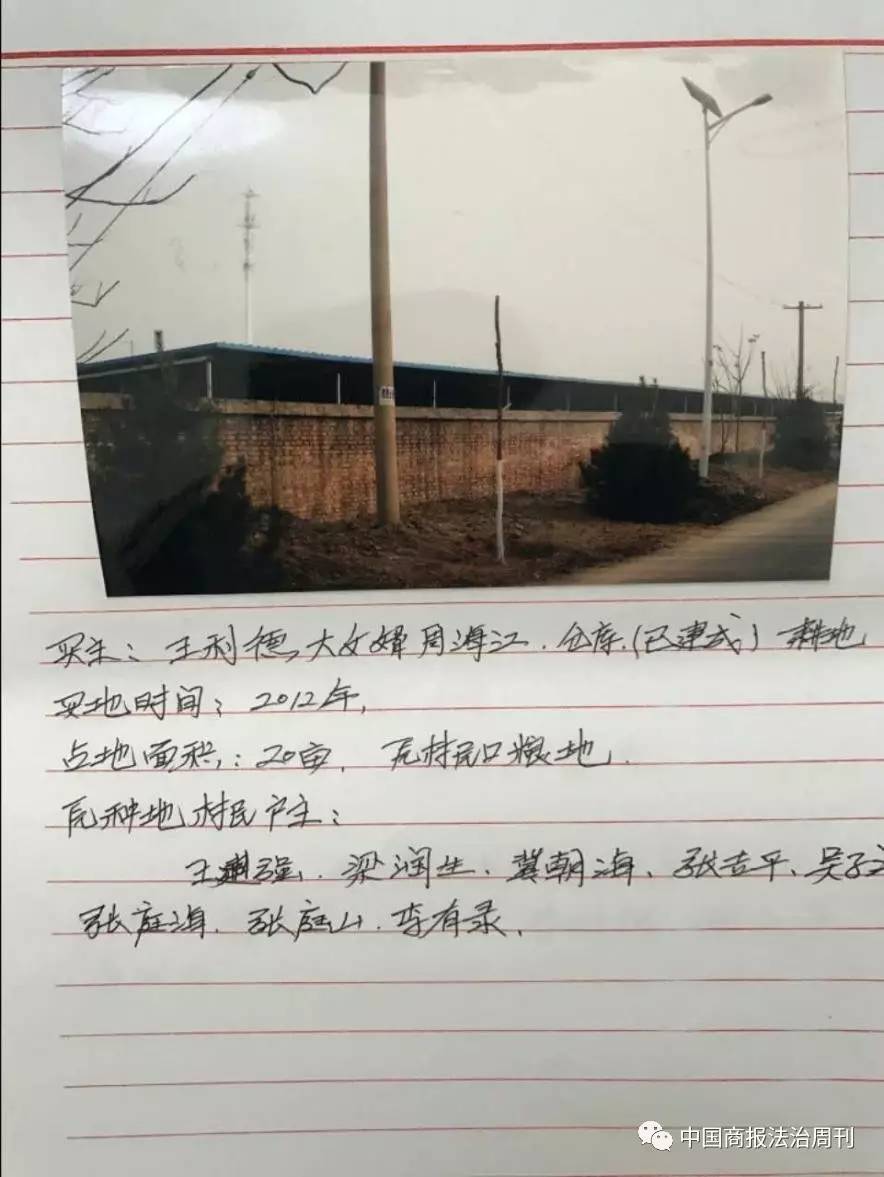 买主：王利德，大女婿周海江．仓库．(已建成) 耕地
买地时间：2012年，
占地面积：20亩． 瓦村民口粮地．
瓦种地村民户主：
强．梁润生．冀朝海、张吉平、吴子
张庭海．张庭山．李有录．
中国商报法治周刊